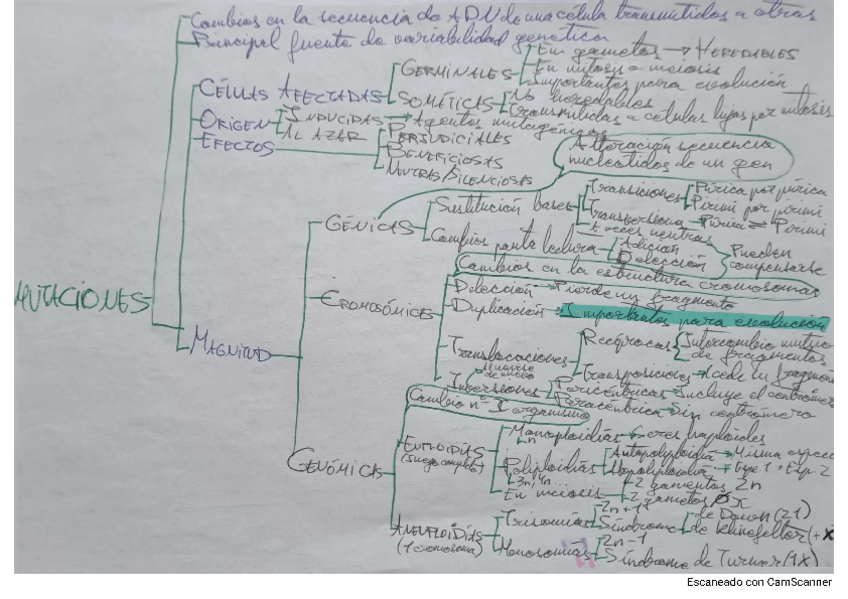 Cambios en la secuencia de ADN de una célula transmitidos a otras
Principal fuente de variabilidad genética
MUTACIONES
CÉLULAS AFECTADAS
GERMINALES
En gametos → HEREDABLES
En mitosis o meiosis
Importantes para evolución
SOMÁTICAS
No heredables
Transmitidas a células hijas por mitosis
ORIGEN
INDUCIDAS → Agentes mutagénicos
AL AZAR
EFECTOS
PERJUDICIALES
BENEFICIOSAS
NEUTRAS/SILENCIOSAS
Alteración secuencia
nucleótidos de un gen
MAGNITUD
GÉNICAS
Sustitución bases
Transiciones
Púrica por púrica
Pirimi por pirimi
Púrica ⇌ Pirimi
A veces neutras
Cambios pauta lectura
Adición
Delección
Pueden
compensarse
Cambios en la estructura cromosomas
CROMOSÓMICAS
Delección → Pierde un fragmento
Duplicación → Importantes para evolución
Translocaciones
Recíprocas
Intercambio mutuo
de fragmentos
Transposiciones → 1 cede un fragmento
Inversiones
Pericéntricas → Incluye el centrómero
Paracéntrica → Sin centrómero
Cambio nº 1 organismo
GENÓMICAS
EUPLOIDÍAS
(juego completo)
Monoploidías → Seres haploides
n
Poliploidías
3n, 4n..
Autopoliploidía → Misma especie
Alopoliploidía → Espe. 1 + Esp. 2
En meiosis
2 gametos 2n
2 gametos
ANEUPLOIDÍAS
(1 cromosoma)
Trisomías
2n+1
Síndrome
de Down (21)
de Klinefelter (+X)
Monosomías
2n-1
Síndrome de Turner (1X)
Escaneado con CamScanner